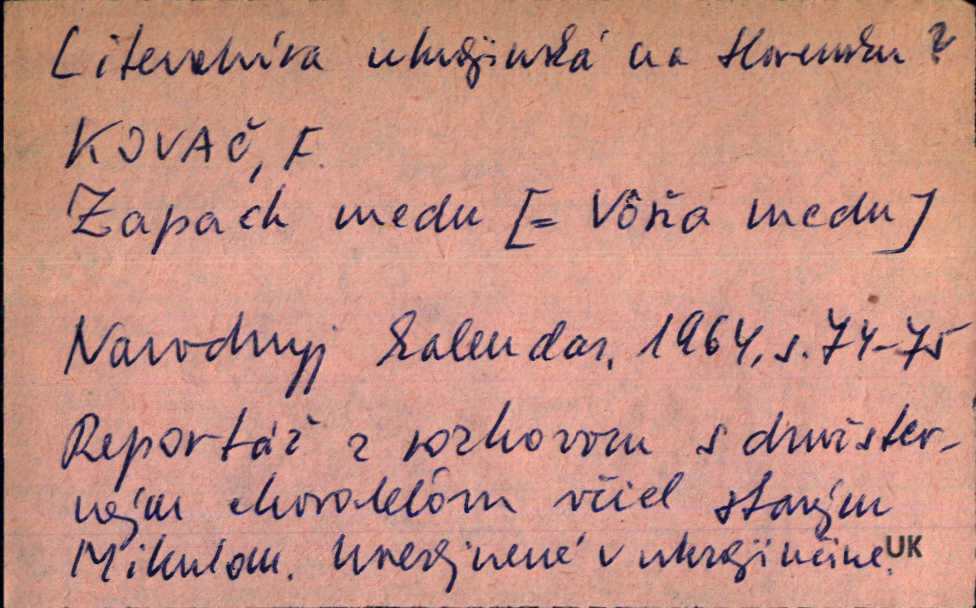 Literatúra ukrajinská na Slovensku 2
KOVAČ, F.
Zapach medu [= Vôňa medu]
Narodnyj kalendar, 1964, s. 74-75
Reportáž z rozhovoru s družstev-
ným chovateľom včiel starým
Mikulom. Uverejnené v ukrajinčine.
UK